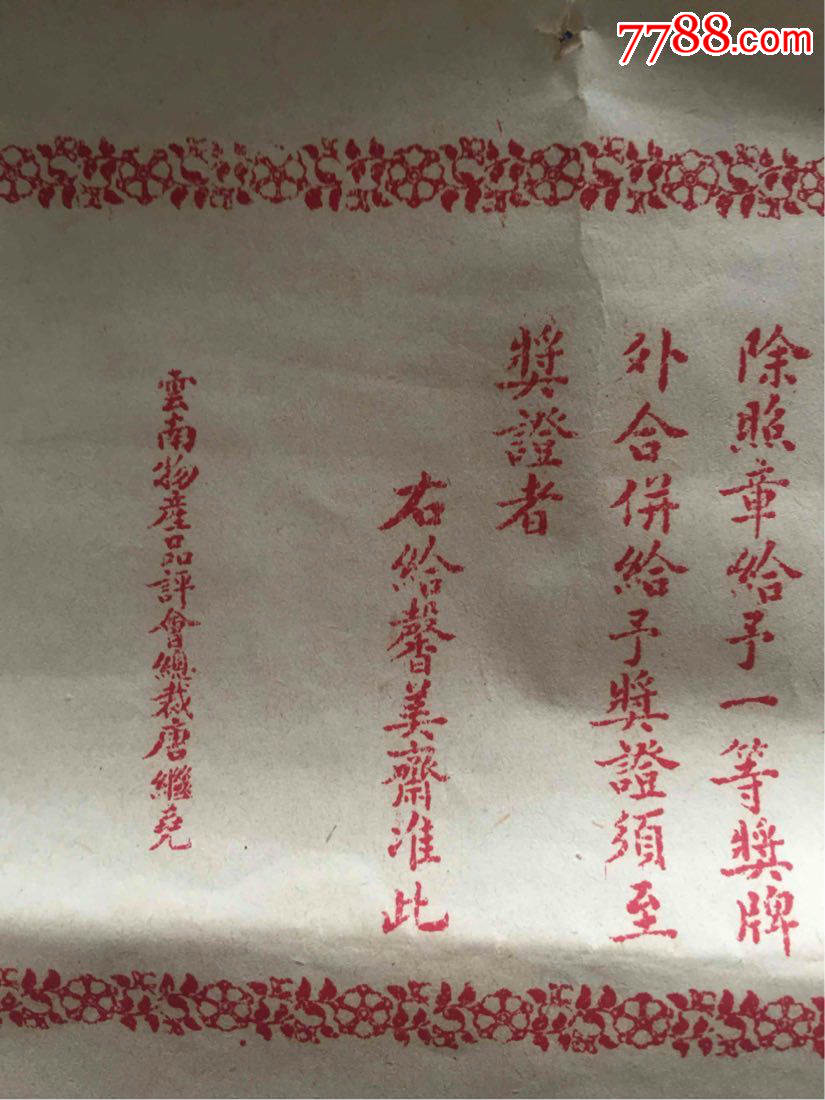 7788.com
除照章給予一等獎牌
外合併給予獎證須至
獎證者
右給馨美齋准此
雲南物產品評會總裁唐繼堯